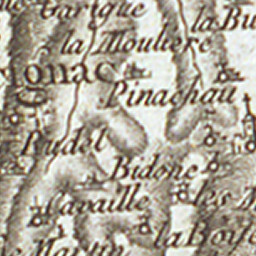 Garrigue
la Bu
la Mouliere
gnac
Pinachau
Rudel
Bidone
Cavaille
les
la Boi
Martin